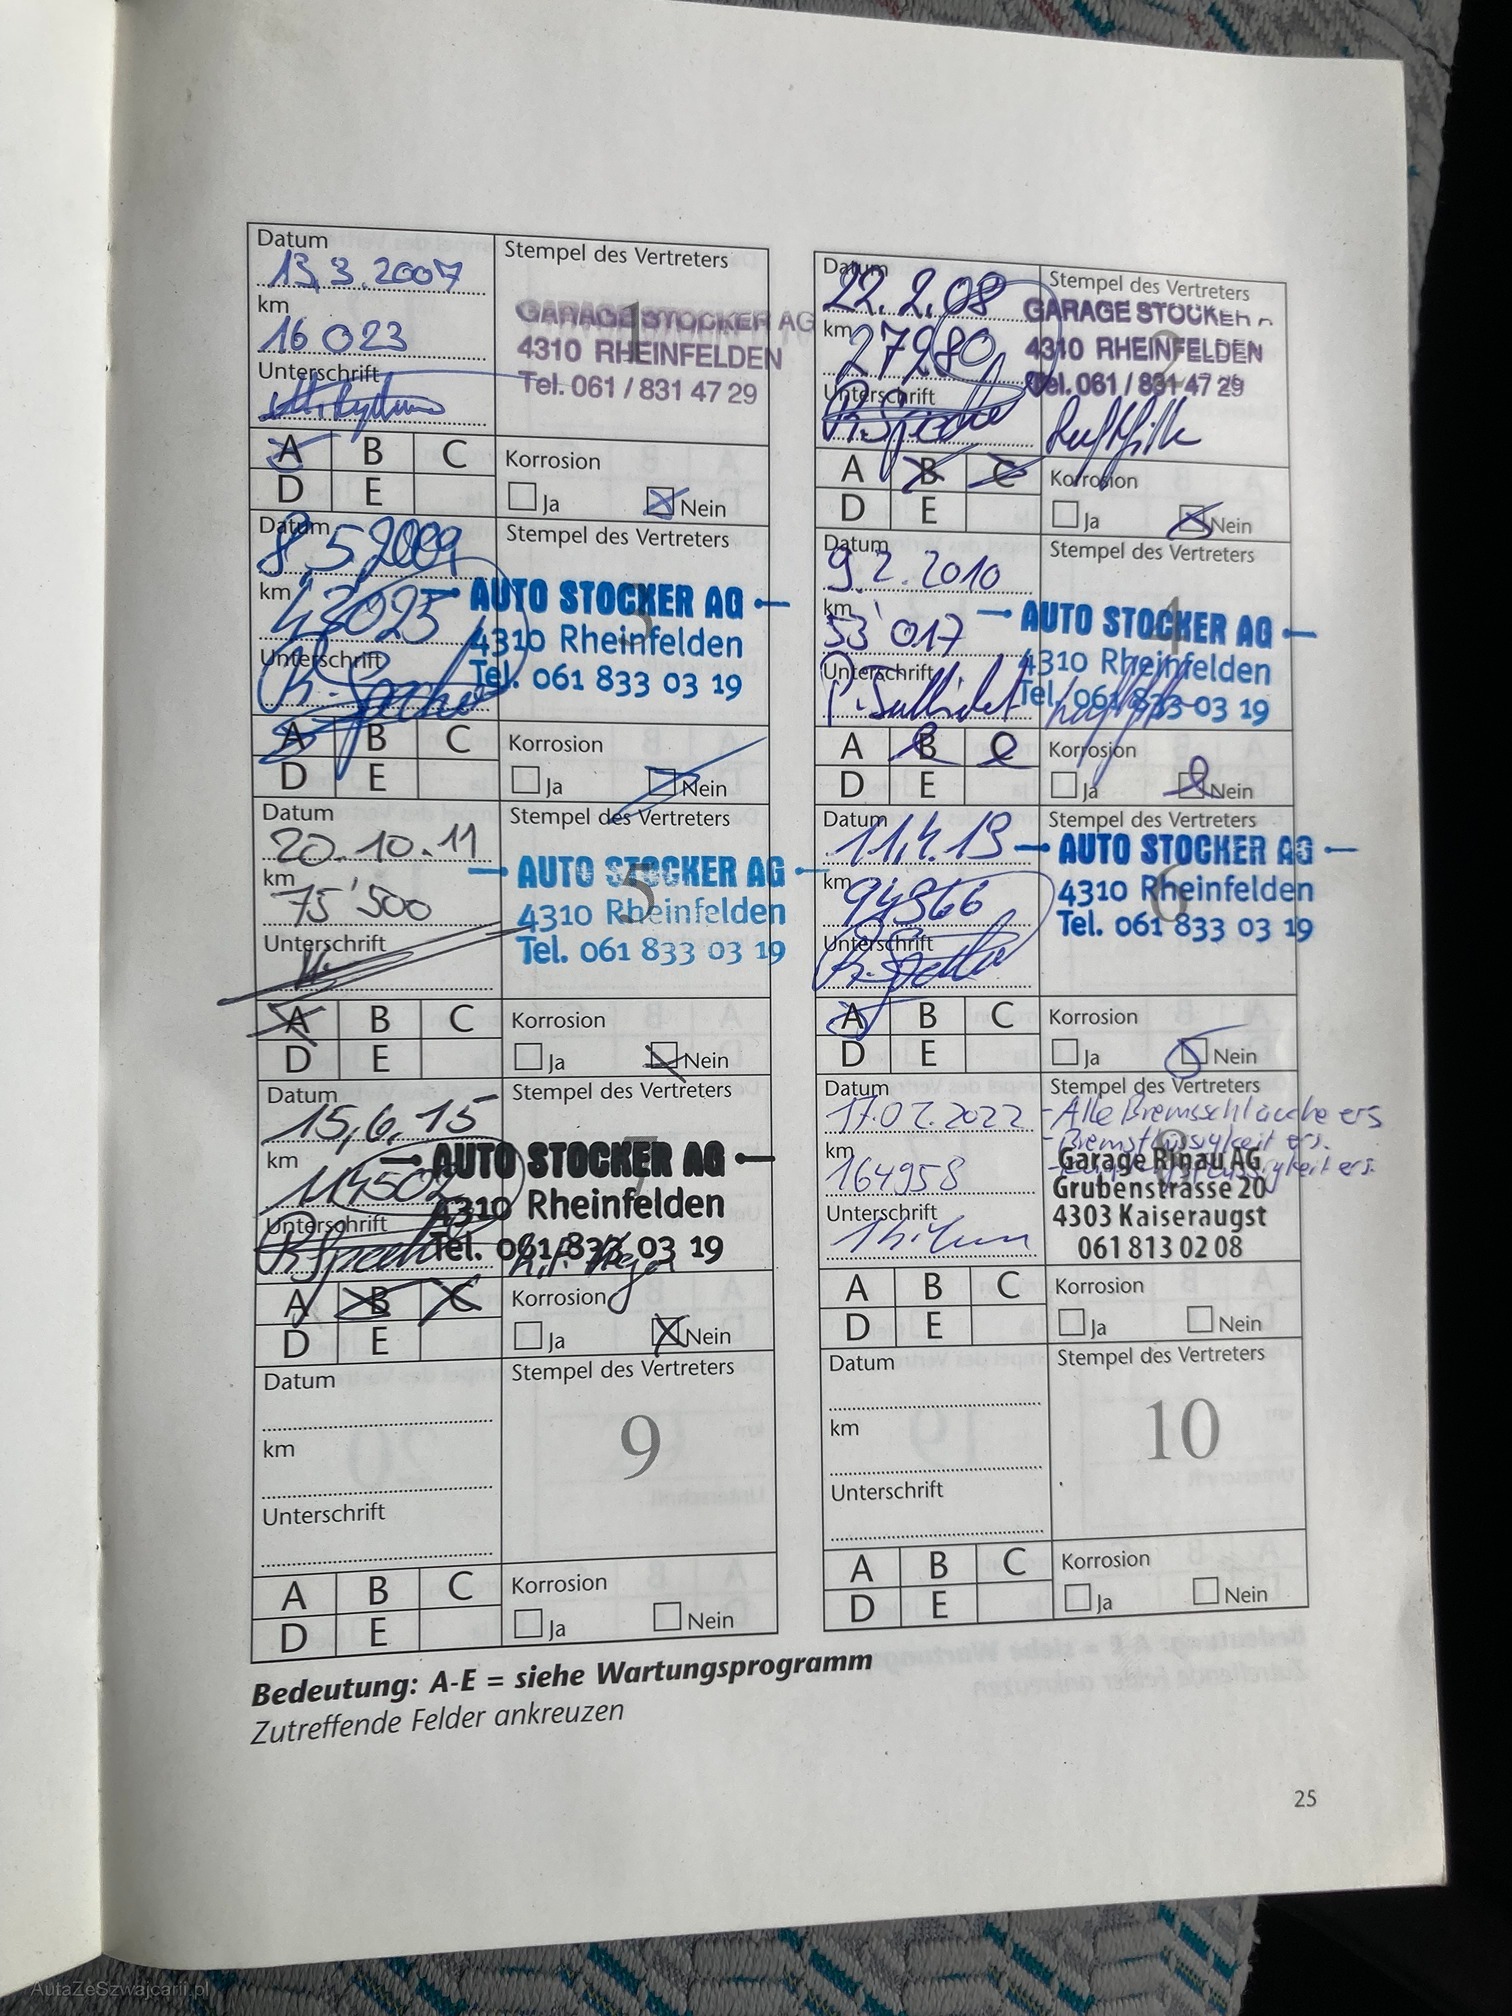 Datum
13.3.2007
km
16 023
Unterschrift
Stempel des Vertreters
1
GARAGE STOCKER AG
4310 RHEINFELDEN
Tel. 061 / 831 47 29
A B C
D E
Korrosion
Ja Nein
Datum
22.2.08
km
27980
Unterschrift
Stempel des Vertreters
2
GARAGE STOCKER
4310 RHEINFELDEN
Tel. 061 / 831 47 29
A B C
D E
Korrosion
Ja Nein
Datum
8.5.2009
km
43025
Unterschrift
Stempel des Vertreters
3
AUTO STOCKER AG
4310 Rheinfelden
Tel. 061 833 03 19
A B C
D E
Korrosion
Ja Nein
Datum
9.2.2010
km
53'017
Unterschrift
Stempel des Vertreters
4
AUTO STOCKER AG
4310 Rheinfelden
Tel. 061 833 03 19
A B C
D E
Korrosion
Ja Nein
Datum
20.10.11
km
75'500
Unterschrift
Stempel des Vertreters
5
AUTO STOCKER AG
4310 Rheinfelden
Tel. 061 833 03 19
A B C
D E
Korrosion
Ja Nein
Datum
11.4.13
km
94566
Unterschrift
Stempel des Vertreters
6
AUTO STOCKER AG
4310 Rheinfelden
Tel. 061 833 03 19
A B C
D E
Korrosion
Ja Nein
Datum
15.6.15
km
114502
Unterschrift
Stempel des Vertreters
7
AUTO STOCKER AG
4310 Rheinfelden
Tel. 061 833 03 19
A B C
D E
Korrosion
Ja Nein
Datum
17.02.2022
km
164958
Unterschrift
Stempel des Vertreters
8
- Alle Bremsschläuche ers
- Bremsflüssigkeit ers.
Garage Rinau AG
Grubenstrasse 20
4303 Kaiseraugst
061 813 02 08
A B C
D E
Korrosion
Ja Nein
Datum
km
Unterschrift
Stempel des Vertreters
9
A B C
D E
Korrosion
Ja Nein
Datum
km
Unterschrift
Stempel des Vertreters
10
A B C
D E
Korrosion
Ja Nein
Bedeutung: A-E = siehe Wartungsprogramm
Zutreffende Felder ankreuzen
25
AutaZeSzwajcarii.pl